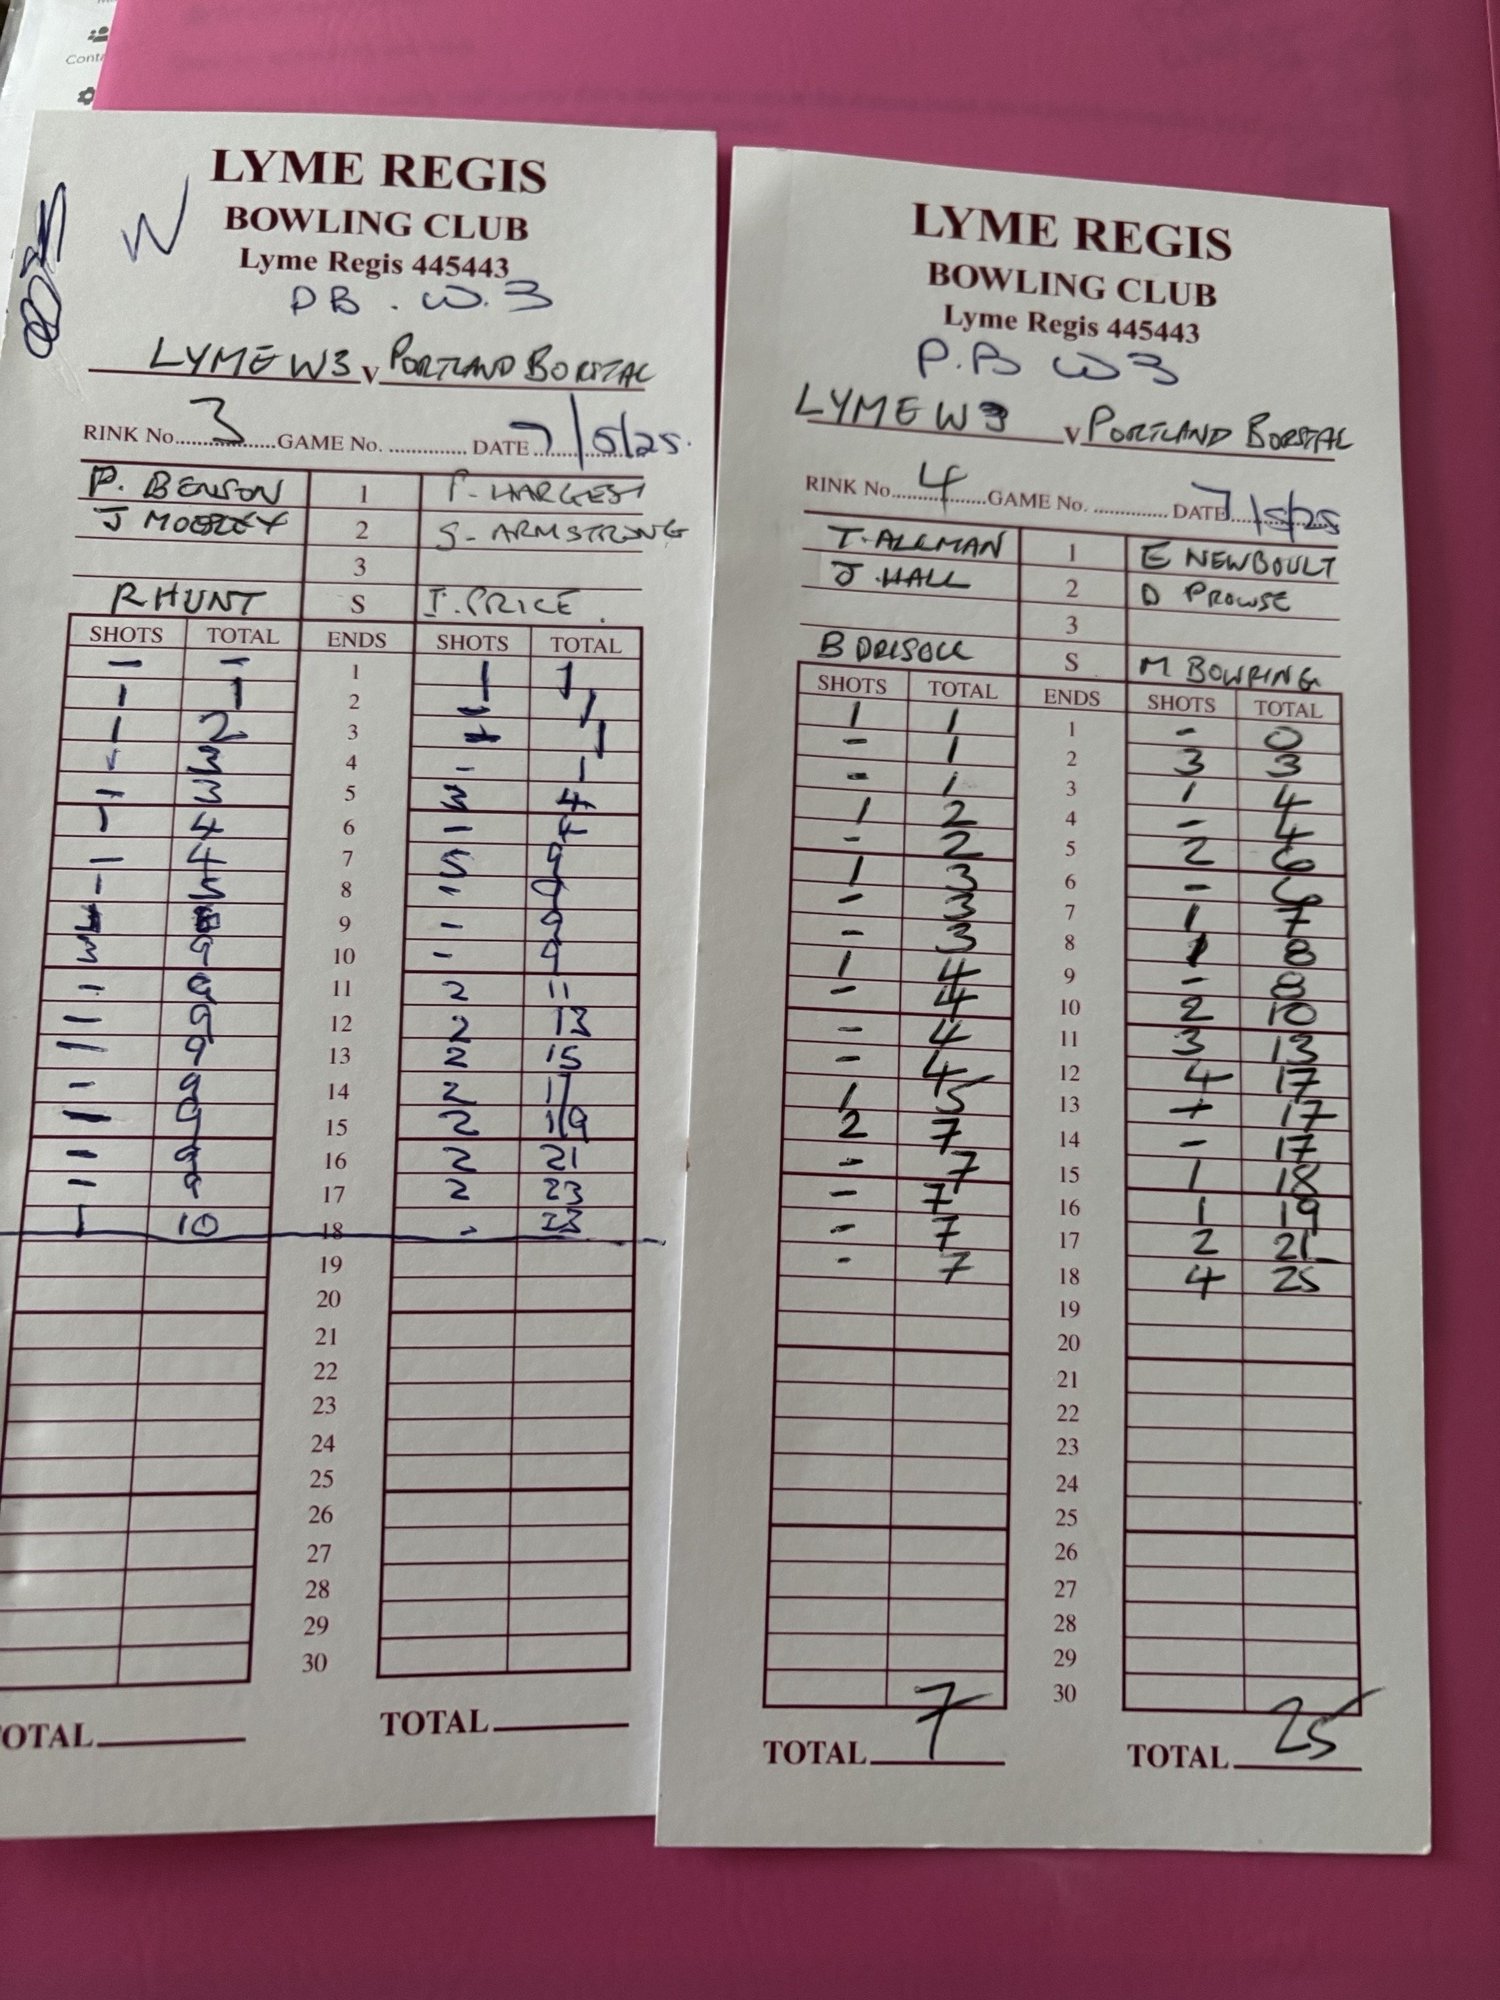 Conta
LYME REGIS
BOWLING CLUB
Lyme Regis 445443
PB. W.3
LYME W3 V PORTLAND BORSTAL
RINK No. 3 GAME No. DATE 7/5/25.
P. BENSON 1 P. HARGEST
J 2 S. ARMSTRONG
3
R HUNT S I. PRICE.
SHOTS TOTAL ENDS SHOTS TOTAL
- - 1 1 1
1 1 2 1
1 2 3 1
3 4 - 1
3 5 3 4
1 4 6 - 4
- 4 7 5 9
1 5 8 - 9
9 - 9
9 10 - 9
- 9 11 2 11
- 9 12 2 13
- 9 13 2 15
- 9 14 2 17
- 9 15 2 19
- 9 16 2 21
- 9 17 2 23
1 10 18 - 23
19
20
21
22
23
24
25
26
27
28
29
30
OTAL TOTAL
LYME REGIS
BOWLING CLUB
Lyme Regis 445443
P.B W3
LYME W3 V PORTLAND BORSTAL
RINK No. 4 GAME No. DATE 7/5/25
T. ALLMAN 1 E NEWBOULT
J. HALL 2 D PROWSE
3
B DRISOLL S M BOWRING
SHOTS TOTAL ENDS SHOTS TOTAL
1 1 1 - 0
- 1 2 3 3
- 1 3 1 4
1 2 4 - 4
- 2 5 2 6
1 3 6 - 6
- 3 7 1 7
- 3 8 1 8
1 4 9 - 8
- 4 10 2 10
- 4 11 3 13
- 4 12 4 17
1 5 13 - 17
2 7 14 - 17
- 7 15 1 18
- 7 16 1 19
- 7 17 2 21
- 7 18 4 25
19
20
21
22
23
24
25
26
27
28
29
30
TOTAL 7 TOTAL 25